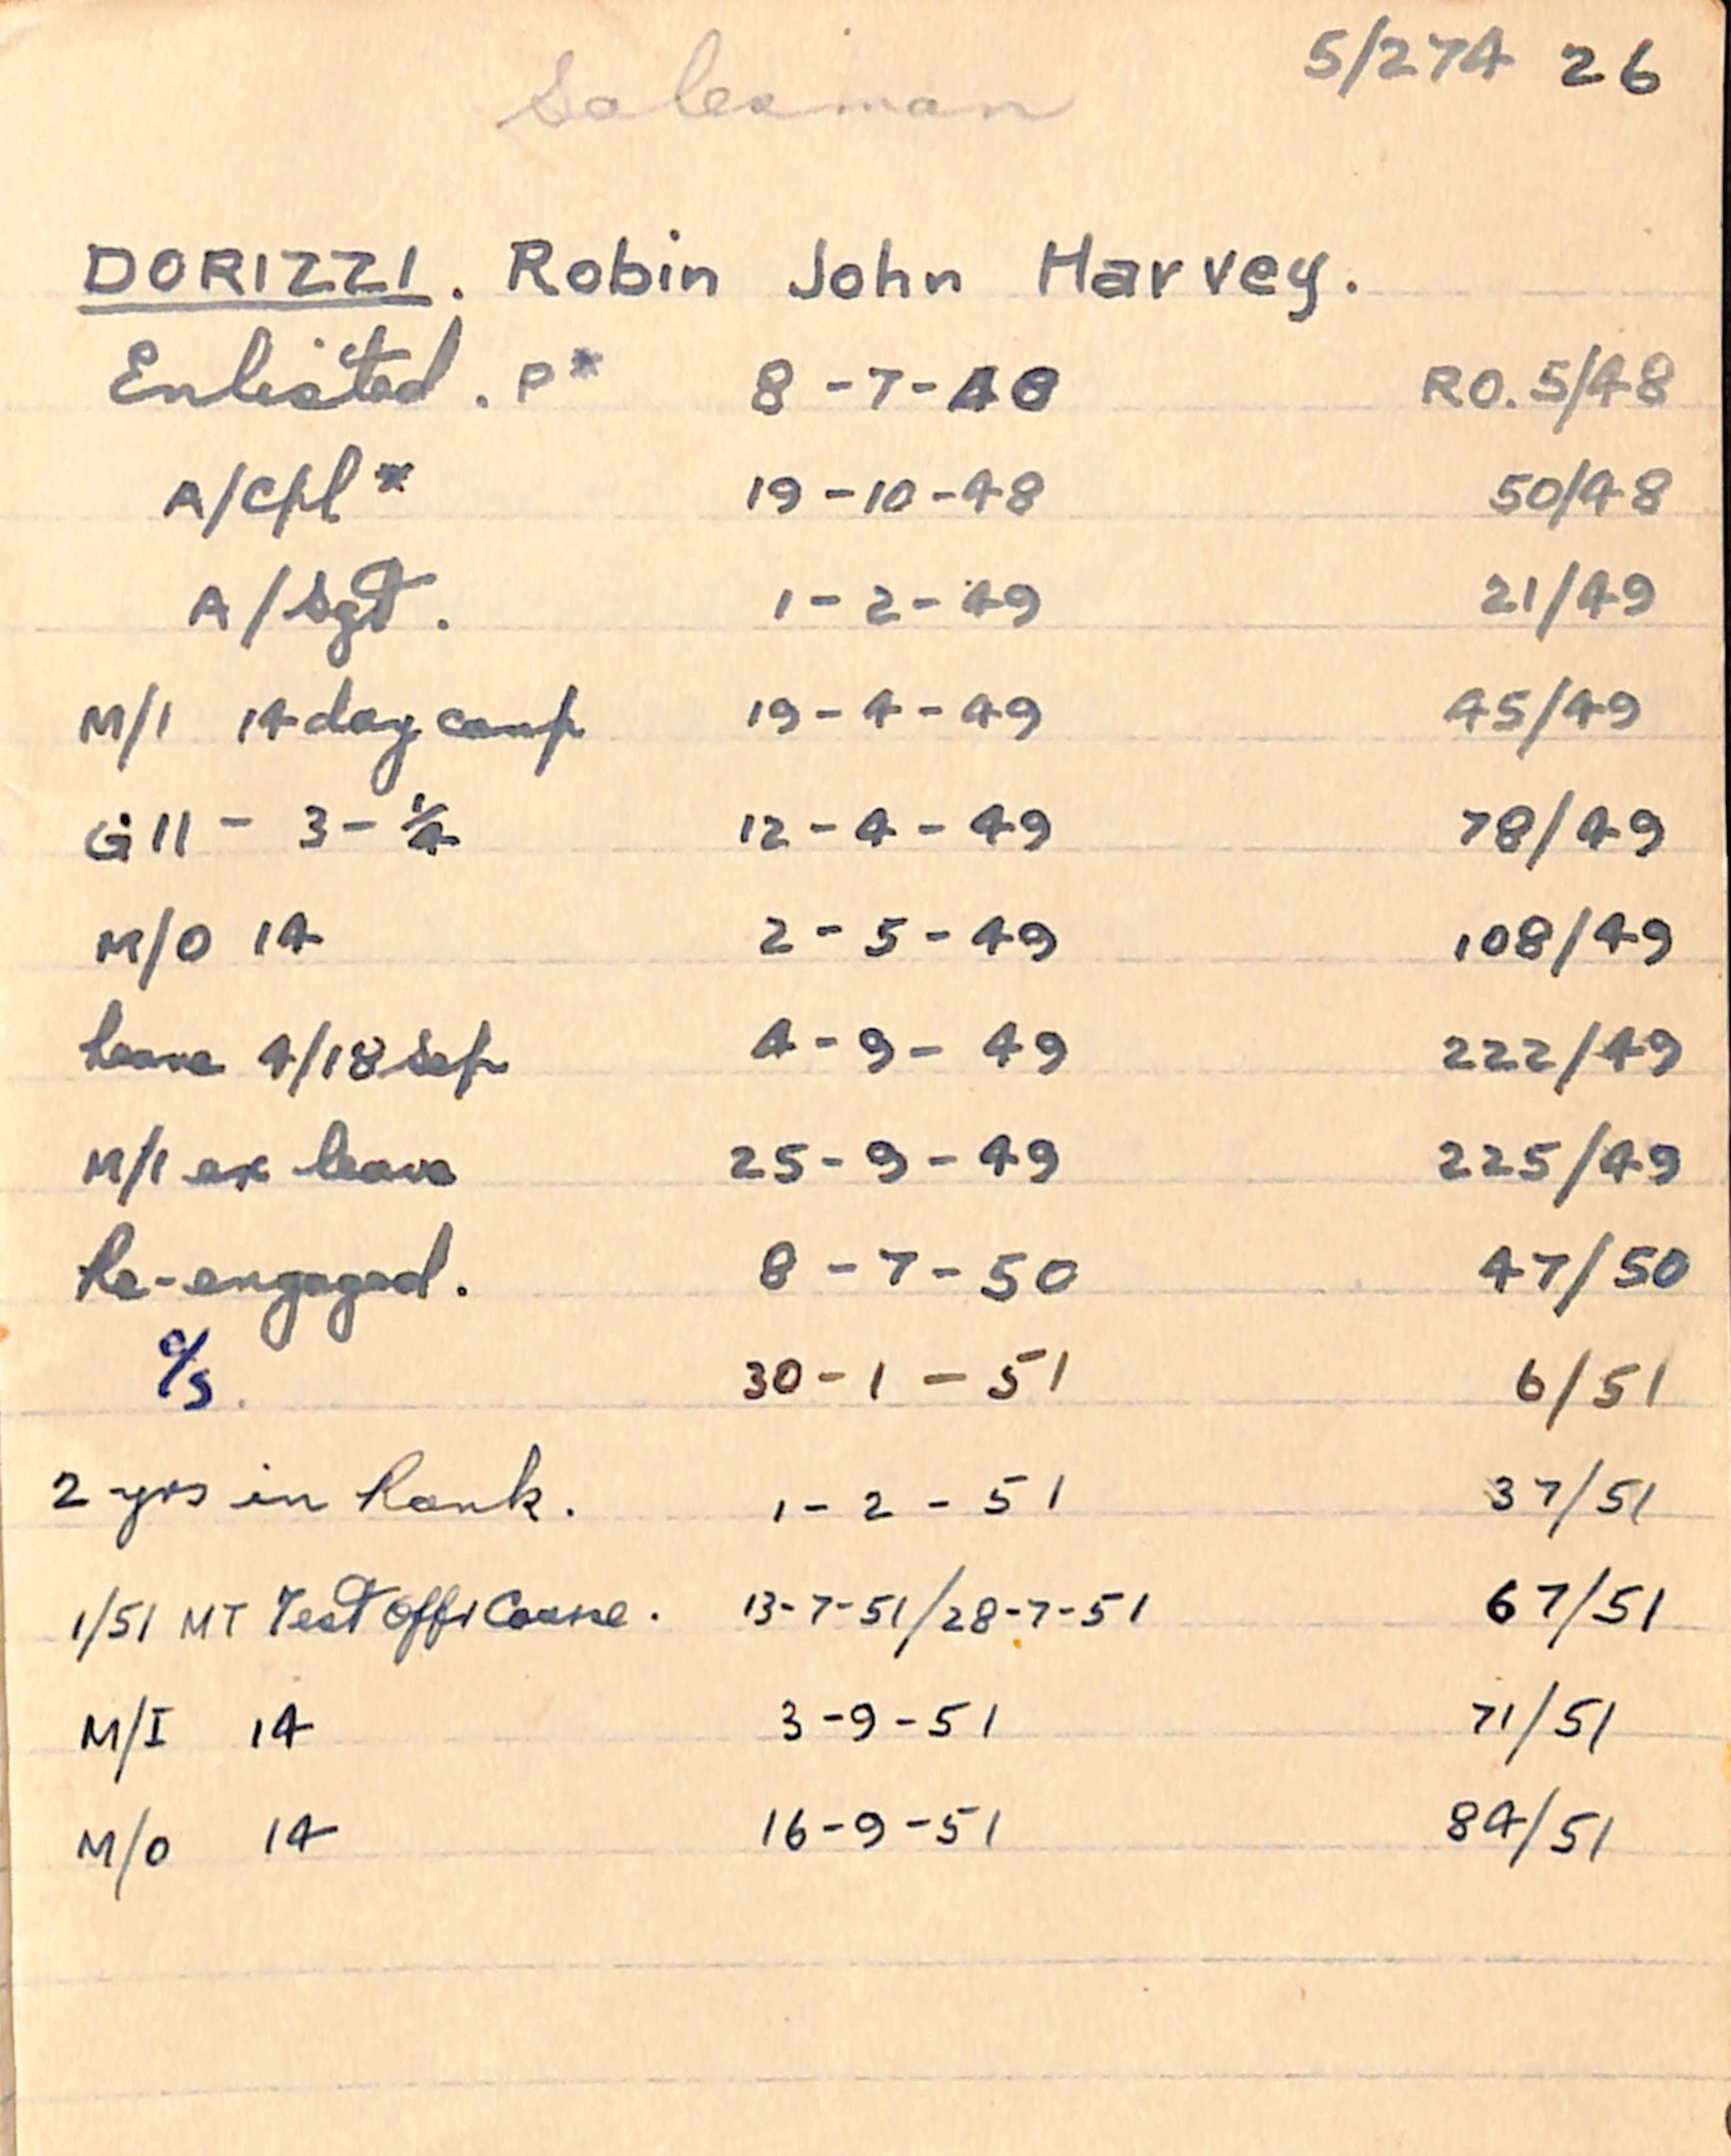 Salesman 5/274 26
DORIZZI. Robin John Harvey.
Enlisted. P* 8-7-48 RO. 5/48
A/Cpl* 19-10-48 50/48
A/Sgt. 1-2-49 21/49
M/1 14 day camp 19-4-49 45/49
G11 - 3 - 1/4 12-4-49 78/49
M/O 14 2-5-49 108/49
Leave 4/18 Sep 4-9-49 222/49
M/1 ex leave 25-9-49 225/49
Re-engaged. 8-7-50 47/50
30-1-51 6/51
2 yrs in Rank. 1-2-51 37/51
1/51 MT Test Offr Course. 13-7-51/28-7-51 67/51
M/I 14 3-9-51 71/51
M/O 14 16-9-51 84/51